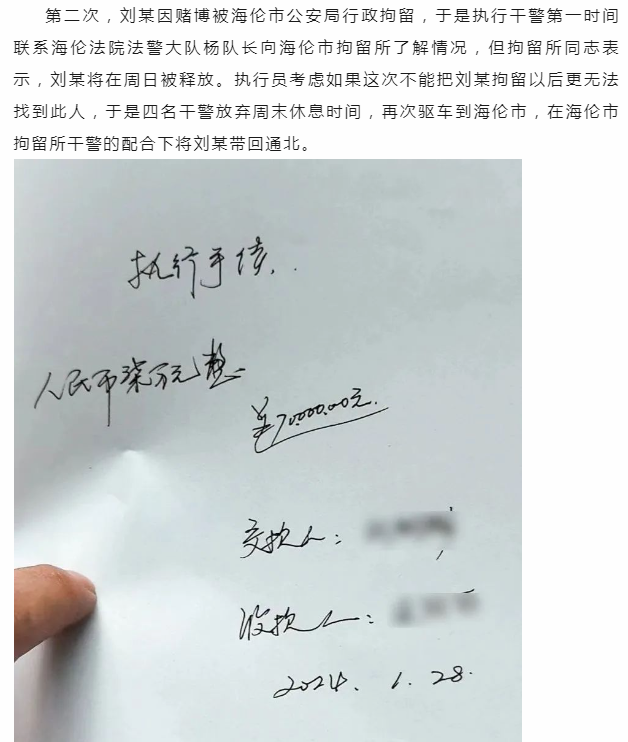 第二次，刘某因赌博被海伦市公安局行政拘留，于是执行干警第一时间
联系海伦法院法警大队杨队长向海伦市拘留所了解情况，但拘留所同志表
示，刘某将在周日被释放。执行员考虑如果这次不能把刘某拘留以后更无法
找到此人，于是四名干警放弃周末休息时间，再次驱车到海伦市，在海伦市
拘留所干警的配合下将刘某带回通北。
执行手续.
人民币柒万元整
¥70000.00元.
交款人：
收款人：
2024. 1. 28.